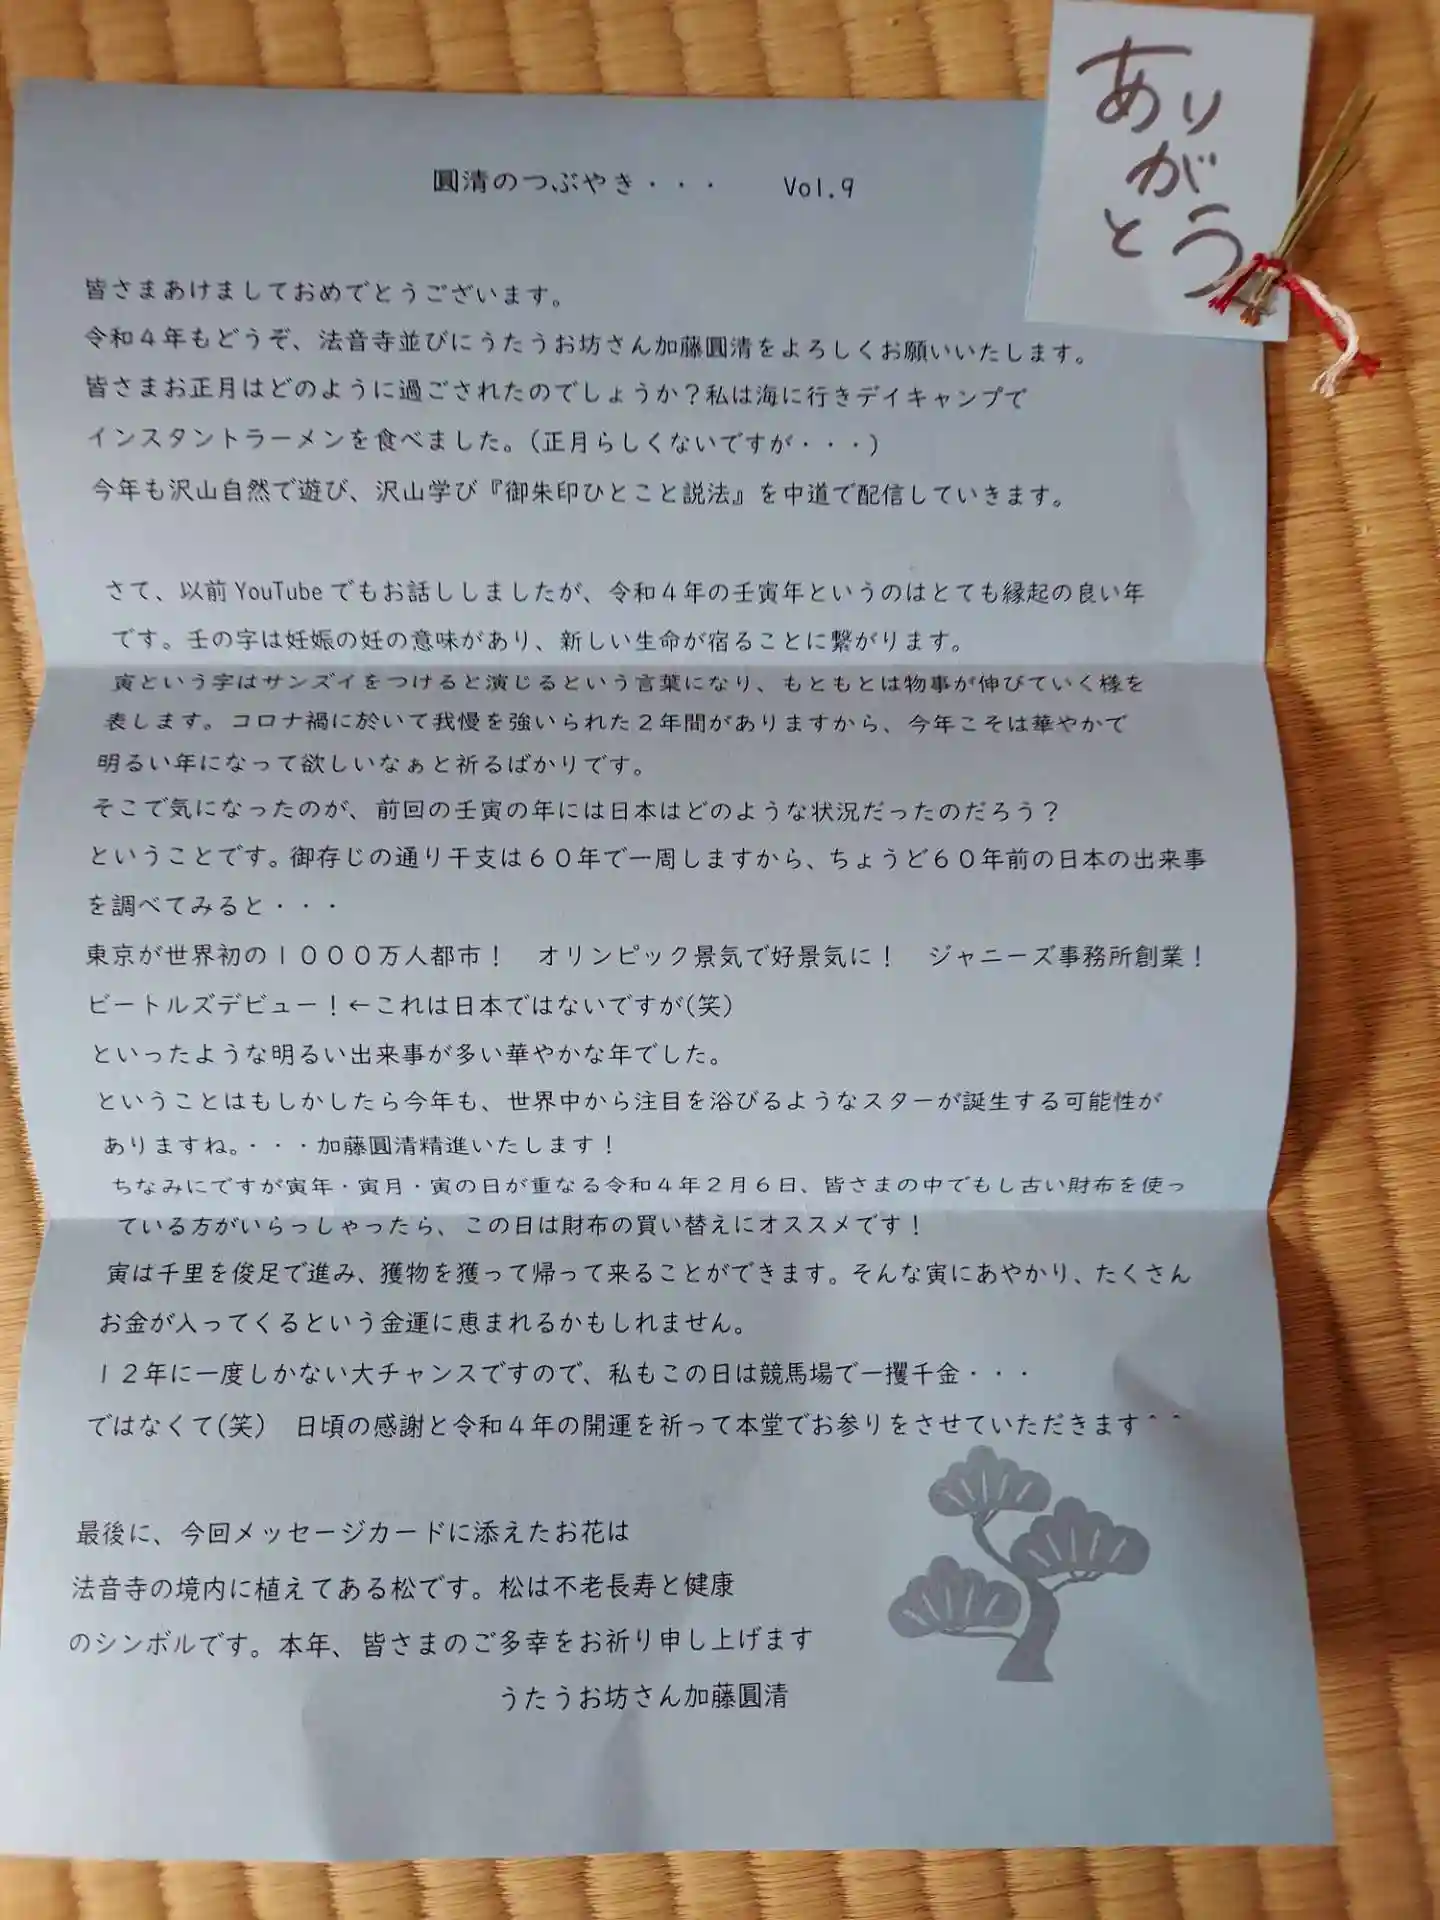 圓清のつぶやき・・・　Vol.9
あり
がとう
皆さまあけましておめでとうございます。
令和４年もどうぞ、法音寺並びにうたうお坊さん加藤圓清をよろしくお願いいたします。
皆さまお正月はどのように過ごされたのでしょうか？私は海に行きデイキャンプで
インスタントラーメンを食べました。（正月らしくないですが・・・）
今年も沢山自然で遊び、沢山学び『御朱印ひとこと説法』を中道で配信していきます。
さて、以前YouTubeでもお話ししましたが、令和４年の壬寅年というのはとても縁起の良い年
です。壬の字は妊娠の妊の意味があり、新しい生命が宿ることに繋がります。
寅という字はサンズイをつけると演じるという言葉になり、もともとは物事が伸びていく様を
表します。コロナ禍に於いて我慢を強いられた２年間がありますから、今年こそは華やかで
明るい年になって欲しいなぁと祈るばかりです。
そこで気になったのが、前回の壬寅の年には日本はどのような状況だったのだろう？
ということです。御存じの通り干支は６０年で一周しますから、ちょうど６０年前の日本の出来事
を調べてみると・・・
東京が世界初の１０００万人都市！　オリンピック景気で好景気に！　ジャニーズ事務所創業！
ビートルズデビュー！←これは日本ではないですが(笑)
といったような明るい出来事が多い華やかな年でした。
ということはもしかしたら今年も、世界中から注目を浴びるようなスターが誕生する可能性が
ありますね。・・・加藤圓清精進いたします！
ちなみにですが寅年・寅月・寅の日が重なる令和４年２月６日、皆さまの中でもし古い財布を使っ
ている方がいらっしゃったら、この日は財布の買い替えにオススメです！
寅は千里を俊足で進み、獲物を獲って帰って来ることができます。そんな寅にあやかり、たくさん
お金が入ってくるという金運に恵まれるかもしれません。
１２年に一度しかない大チャンスですので、私もこの日は競馬場で一攫千金・・・
ではなくて(笑)　日頃の感謝と令和４年の開運を祈って本堂でお参りをさせていただきます＾＾
最後に、今回メッセージカードに添えたお花は
法音寺の境内に植えてある松です。松は不老長寿と健康
のシンボルです。本年、皆さまのご多幸をお祈り申し上げます
うたうお坊さん加藤圓清